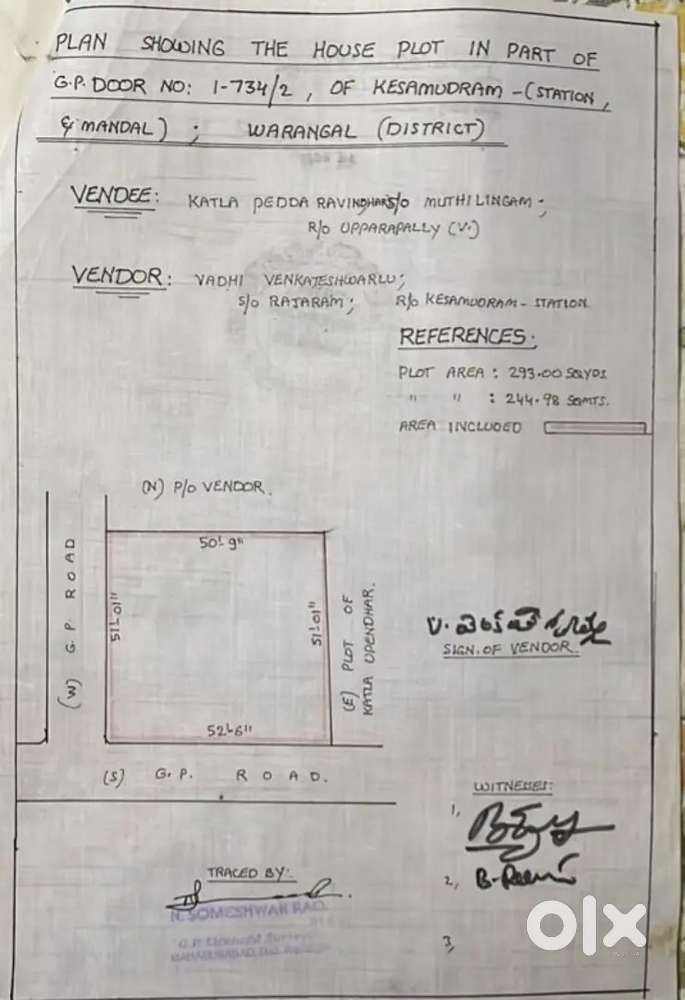 PLAN SHOWING THE HOUSE PLOT IN PART OF
G.P. DOOR NO: 1-734/2, OF KESAMUDRAM -(STATION,
& MANDAL) ; WARANGAL (DISTRICT)
VENDEE: KATLA PEDDA RAVINDHAR S/O MUTHILINGAM;
R/O UPPARAPALLY (V.)
VENDOR: VADHI VENKATESHWARLU;
S/O RAJARAM; R/O KESAMUDRAM - STATION
REFERENCES:
PLOT AREA : 293.00 SQYDS
" " : 244.98 SQMTS.
AREA INCLUDED
(N) P/O VENDOR.
50'-9"
(W) G.P. ROAD
51'-01"
51'-01"
(E) PLOT OF
KATLA UPENDHAR.
52'-6"
(S) G.P. ROAD.
SIGN. OF VENDOR.
WITNESSES:
1,
2,
3,
TRACED BY:
N. SOMESHWAR RAO
olx